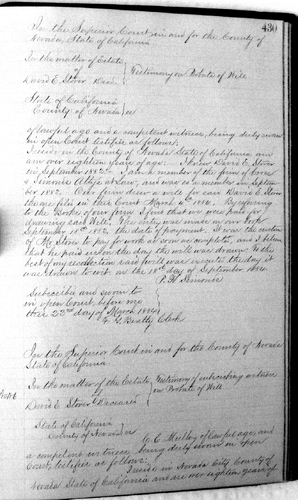 430
In the Superior Court in and for the County of
Nevada, State of California
In the matter of Estate
Testimony on Probate of Will
David E. Stover Decd
State of California
County of Nevada ss
of lawful age and a competent witness, being duly sworn
in open Court testifies as follows:
I reside in the County of Nevada State of California am
am over eighteen years of age. I knew David E. Stover
in September 1882. I am a member of the firm of
Attys at Law, and was a member in Septem
ber 1882. Our firm drew a will for said David E. Stover
the one filed in this Court March 4th 1884. By referring
to the books of our firm I find that we were paid for
drawing said Will. The entry was made in our books
September 18th 1882 the date of payment. It was the custom
of Mr Stover to pay for work as soon as completed, and I believe
that he paid us on the day the will was drawn. To the
best of my recollection said will was executed the day it
was drawn to wit on the 18th day of September 1882.
P. H.
Subscribed and sworn to
in open Court, before me
this 22nd day of March 1884
F. G. Beatty Clerk
In the Superior Court in and for the County of Nevada
State of California
In the matter of the Estate
of
Testimony of subscribing witness
on Probate of Will
David E. Stover Deceased
State of California
County of Nevada ss
of lawful age, and
a competent witness being duly sworn in open
Court, testifies as follows:
I reside in Nevada City County of
Nevada State of California and am over eighteen years of